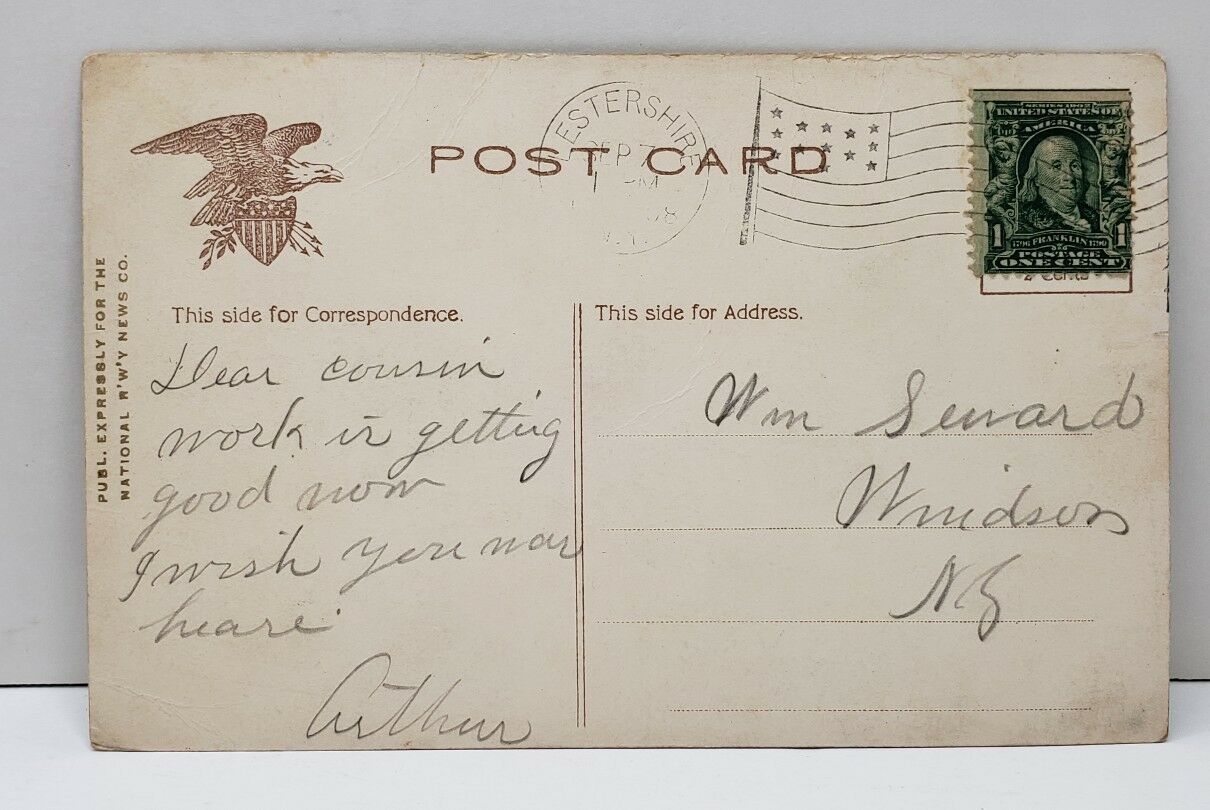 POST CARD
LESTERSHIRE
SEP 7
M
08
N.Y.
SERIES 1902
UNITED STATES OF
AMERICA
1 FRANKLIN 1
POSTAGE
ONE CENT
2 Cents
PUBL. EXPRESSLY FOR THE
NATIONAL R'W'Y NEWS CO.
This side for Correspondence.
Dear cousin
work is getting
good now
I wish you war
heare
Arthur
This side for Address.
Wm Seward
Windson
NY